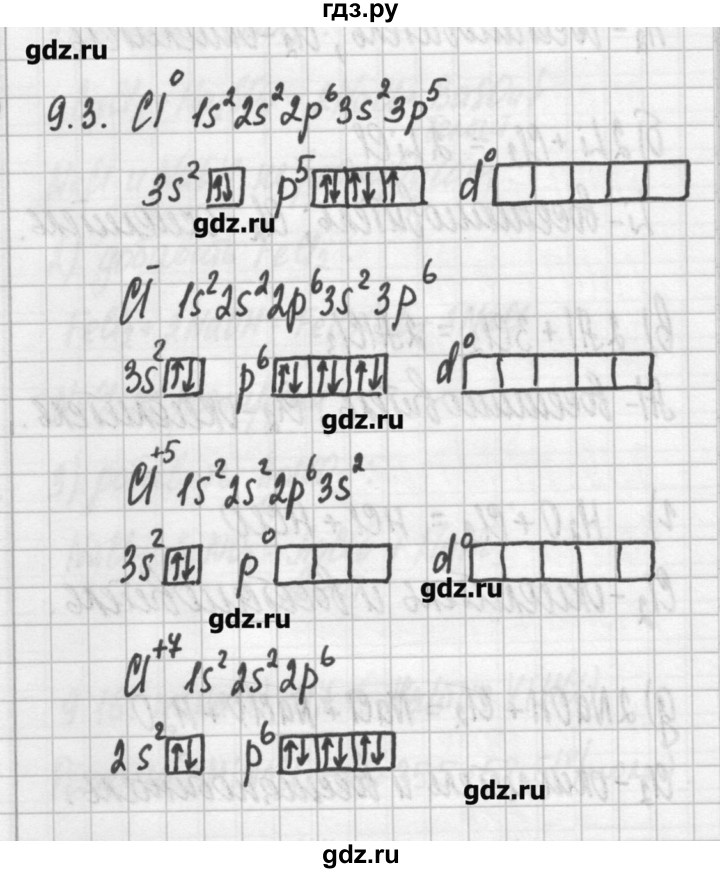 гдз.ру
gdz.ru
9.3. Cl⁰ 1s²2s²2p⁶3s²3p⁵
3s² ↑↓ p⁵ ↑↓ ↑↓ ↑ d⁰
gdz.ru
Cl⁻ 1s²2s²2p⁶3s²3p⁶
3s² ↑↓ p⁶ ↑↓ ↑↓ ↑↓ d⁰
gdz.ru
Cl⁺⁵ 1s²2s²2p⁶3s²
3s² ↑↓ p⁰ d⁰
gdz.ru
gdz.ru
Cl⁺⁷ 1s²2s²2p⁶
2s² ↑↓ p⁶ ↑↓ ↑↓ ↑↓
gdz.ru
gdz.ru